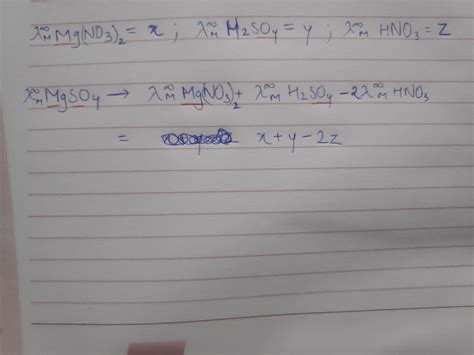 λ∞m Mg(NO3)2 = x ; λ∞m H2SO4 = y ; λ∞m HNO3 = Z
λ∞m MgSO4 → λ∞m Mg(NO3)2 + λ∞m H2SO4 - 2λ∞m HNO3
= x + y - 2z